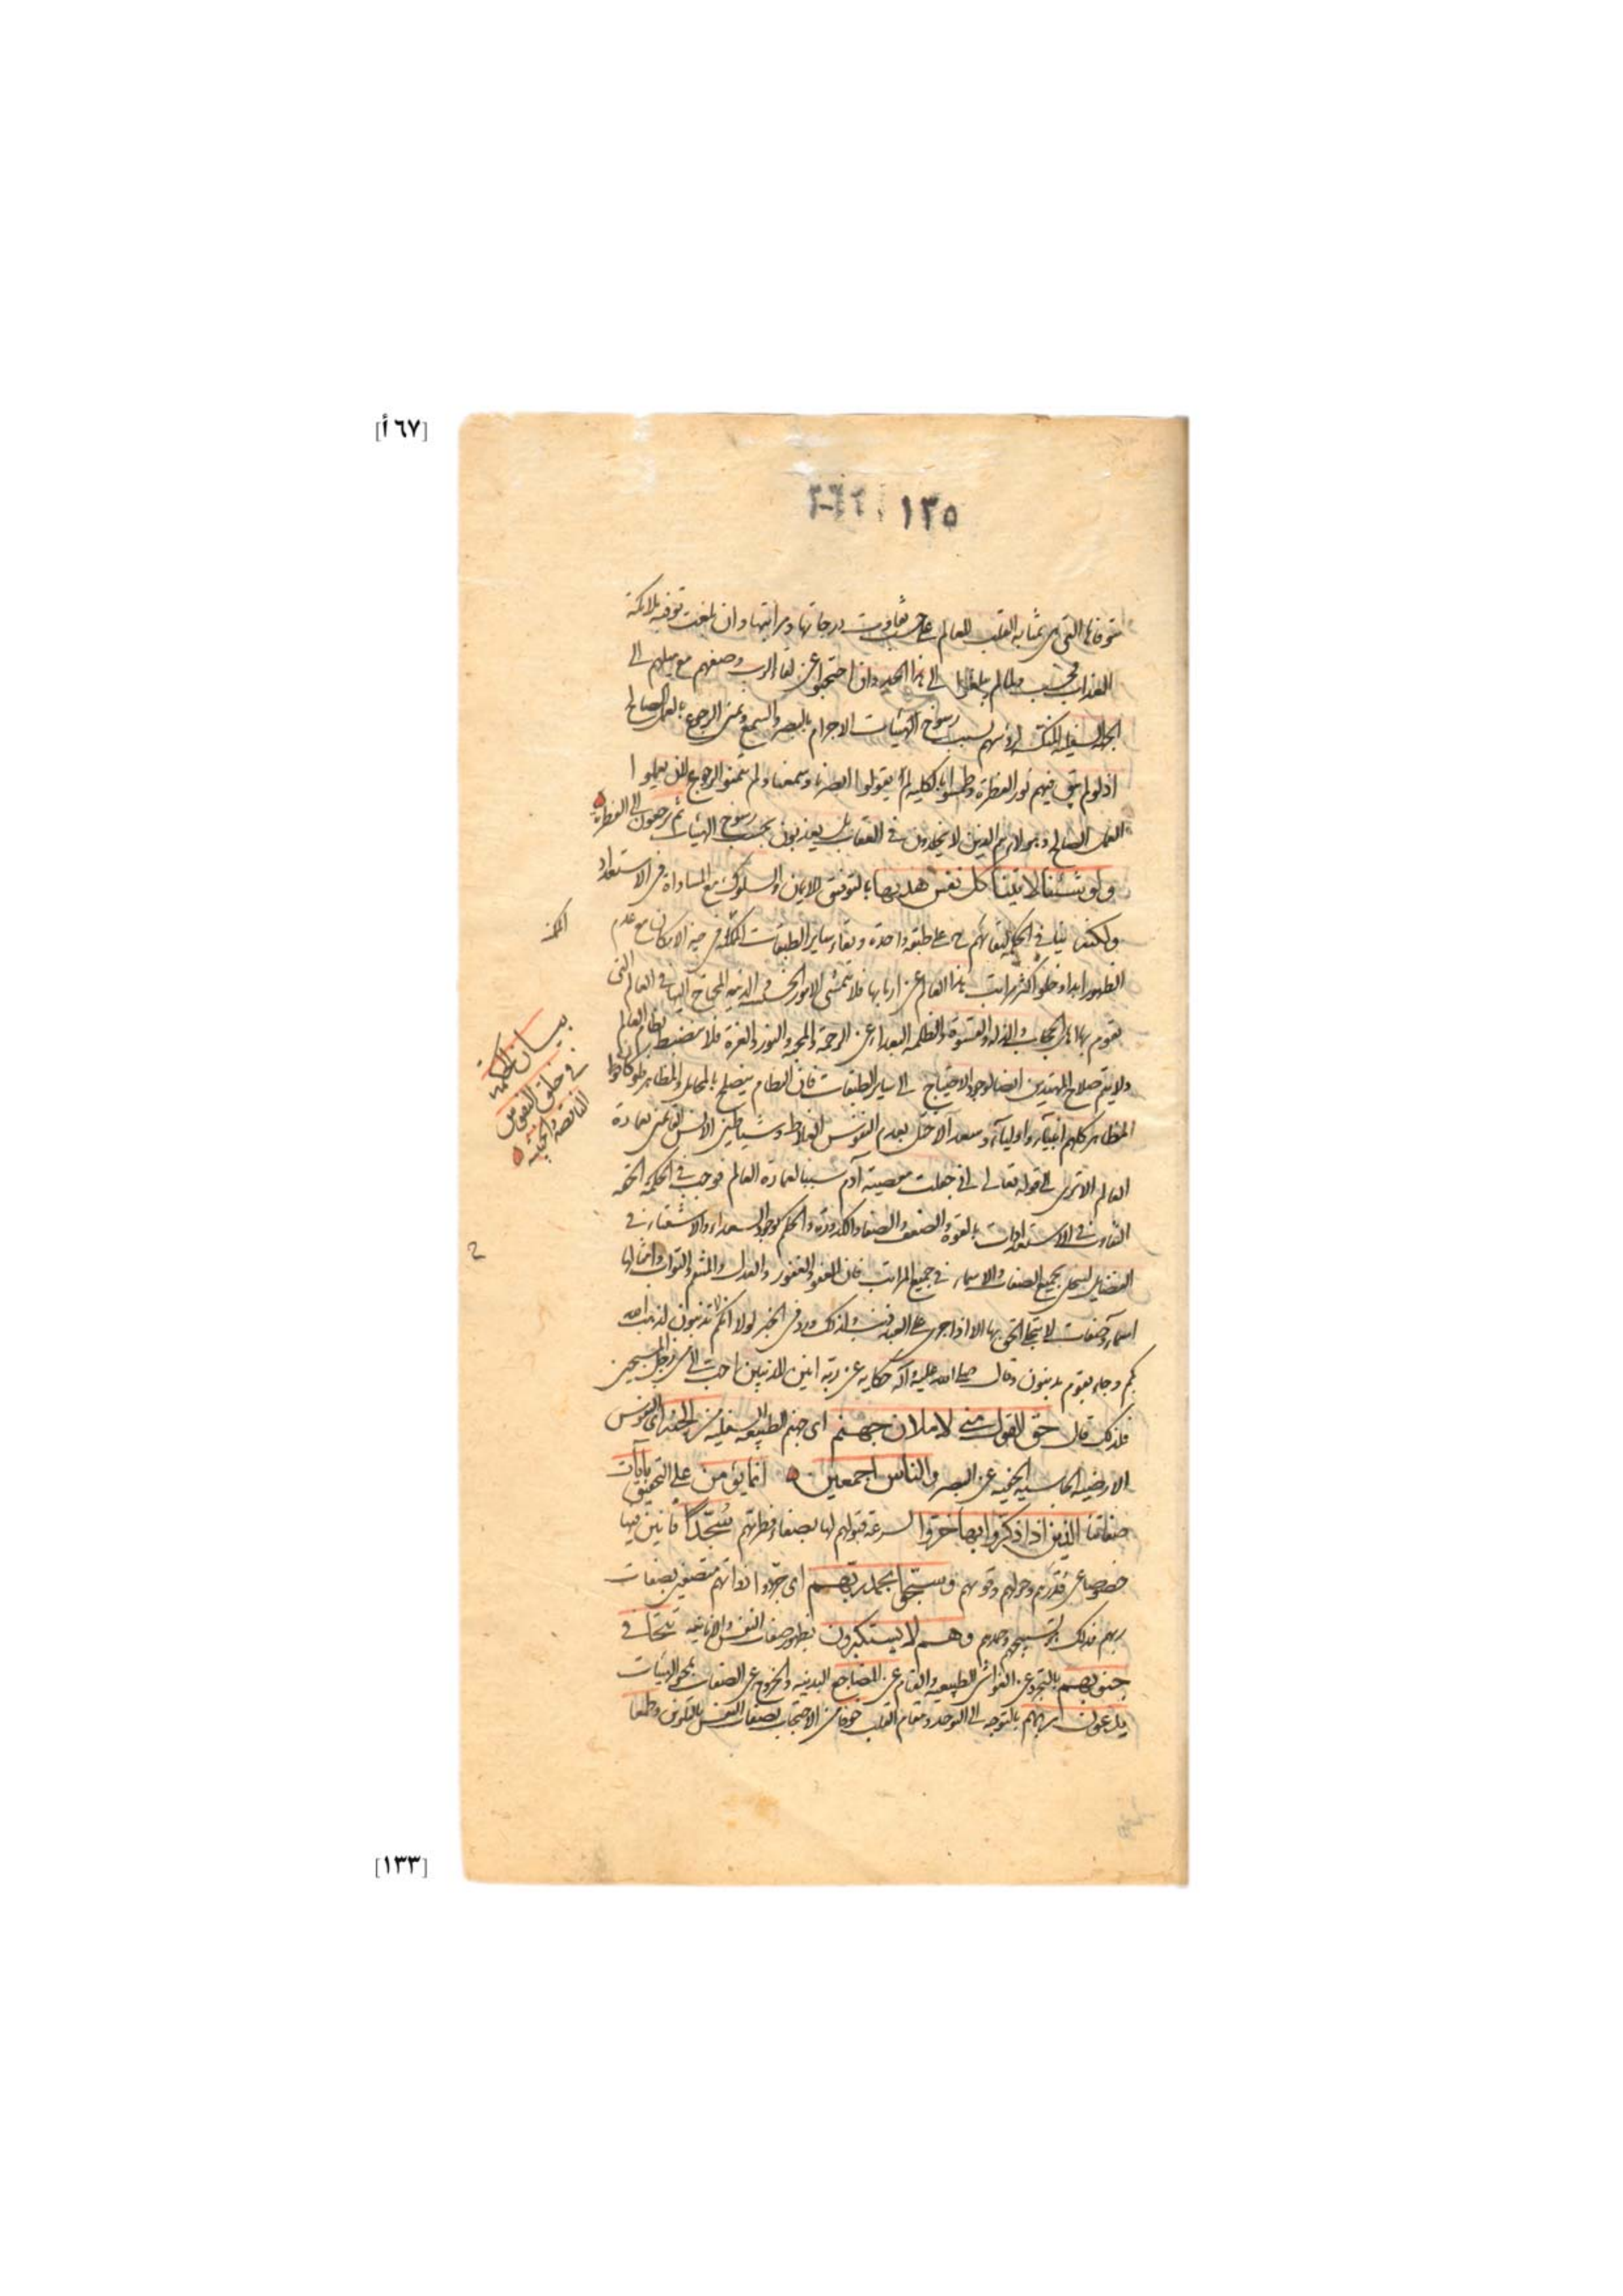 [٦٧ أ]
١٣٥
متوفاها التي هي بمثابة القلب للعالم على حسب تفاوت درجاتها ومراتبها وان بلغت توفيه ملائكة
العذاب فحسب مبلغا إلى هذا الحد وان احتجبوا عن لقاء الرب وصفهم مع ميلهم الى
الجهة السفلية المنتكسة رؤسهم بسبب رسوخ الهيئات الاجرام بالبصر والسمع وتمنى الرجوع بالعمل الصالح
اذ لو لم يبق فيهم نور الفطرة وطمسوا بالكلية لم يقولوا ابصرنا وسمعنا ولم يتمنوا الرجوع لان يعملوا
العمل الصالح وهؤلاء هم الذين لا يخلدون في العقاب بل يعذبون بحسب رسوخ الهيئات ثم يرجعون الى الفطرة
ولو شئنا لاتينا كل نفس هديها بالتوفيق للايمان والسلوك مع المساواة في الاستعداد
ولكنه ينافي الحكمة لبقائهم ح على طبقة واحدة وبقاء ساير الطبقات الممكنة في حيز الامكان مع عدم
الظهور ابدا وخلو اكثر مراتب هذا العالم عن اربابها فلا تتمشى الامور الخسيسة الدنية المحتاج اليها في العالم التي
يقوم بها اهل الحجاب والذلة والقسوة والظلمة البعداء عن الرحمة والمحبة والنور والعزة فلا ينضبط نظام العالم
ولا يتم صلاح المهتدين ايضا لوجود الاحتياج الى ساير الطبقات فان النظام ينصلح بالمحابس والمظاهر فلو كانوا
المظاهر كلهم انبياء واولياء وسعداء لاختل بعدم النفوس الغلاظ وشياطين الانس القائمين بعمارة
العالم الا ترى الى قوله تعالى اني جعلت معصية آدم سببا لعمارة العالم فوجب في الحكمة الحقة
التفاوت في الاستعدادات بالقوة والضعف والصفاء والكدورة والحكم بوجود السعداء والاشقياء في
القضاء ليتجلى بجميع الصفات والاسماء في جميع المراتب فان العفو والغفور والعدل والمنتقم والتواب وامثالها
اسماء وصفات لا يتجلى الحق بها الا اذا جرى على العبد ذنب ولذلك ورد في الخبر لولا انكم تذنبون لذهب الله
بكم وجاء بقوم يذنبون وقال صلى الله عليه وآله حكاية عن ربه انين المذنبين احب الى من زجل المسبحين
فلذلك قال حق القول مني لاملان جهنم اى جهنم الطبيعة السفلية من الجنة اى النفوس
الارضية الخفية عن البصر والناس اجمعين انما يؤمن على التحقيق بآيات
صفاتنا الذين اذا ذكروا بها خروا لسرعة قبولهم لها بصفاء فطرتهم سجدا فانين فيها
خضوعا عن قدرهم وحولهم وقوتهم وسبحوا بحمد ربهم اى جردوا ذواتهم متصفين بصفات
ربهم فذلك هو تسبيحهم وحمدهم وهم لا يستكبرون بظهور صفات النفس والانانية تتجافى
جنوبهم بالتجرد عن الغواشى الطبيعية والقيام عن المضاجع البدنية والخروج عن الصفات بمحو الهيئات
يدعون ربهم بالتوجه الى التوحد ومقام القلب خوفا من الاحتجاب بصفات النفس بالتلوين وطمعا
بيان الحكمة
في خلق النفوس
الناقصة والخبيثة
[١٣٣]